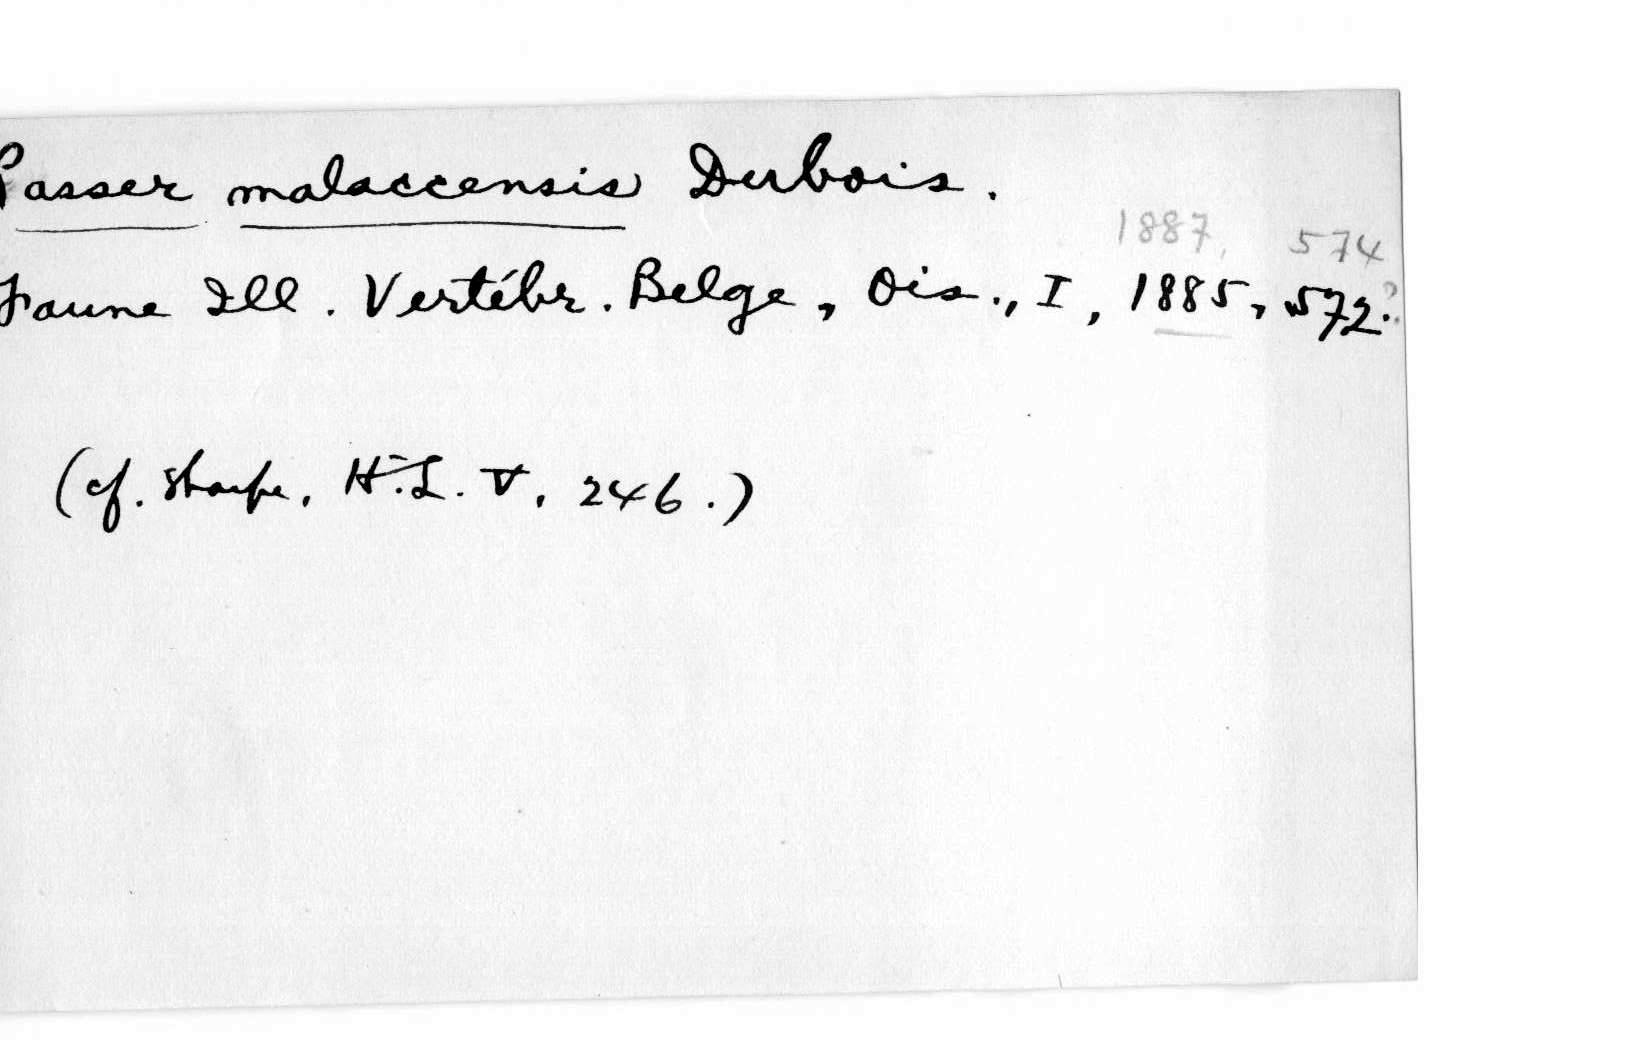 Passer malaccensis Dubois.
1887, 574
Faune Ill. Vertébr. Belge, Ois., I, 1885, 572.?
(cf. Sharpe, H.L. V, 246.)